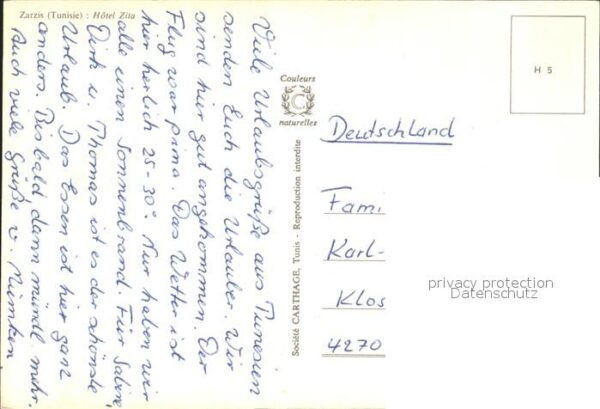 Zarzis (Tunisie) : Hôtel Zita
Viele Urlaubsgrüße aus Tunesien
senden Euch die Urlauber. Wir
sind hier gut angekommen. Der
Flug war prima. Das Wetter ist
hier herlich 25-30°. Nur haben wir
alle einen Sonnenbrand. Für Sabine,
Dirk u. Thomas ist es der schönste
Urlaub. Das Essen ist hier ganz
anders. Bis bald, dann mündl mehr.
Auch viele Grüße v.
Couleurs
C
naturelles
Société CARTHAGE, Tunis - Reproduction interdite
H 5
Deutschland
Fami
Karl-
Klos
4270
privacy protection
Datenschutz